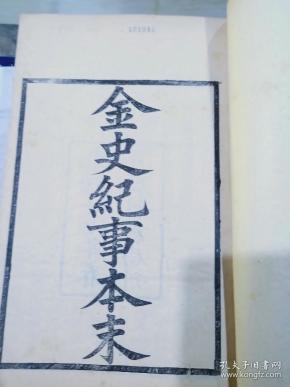 金史紀事本末
孔夫子旧书网